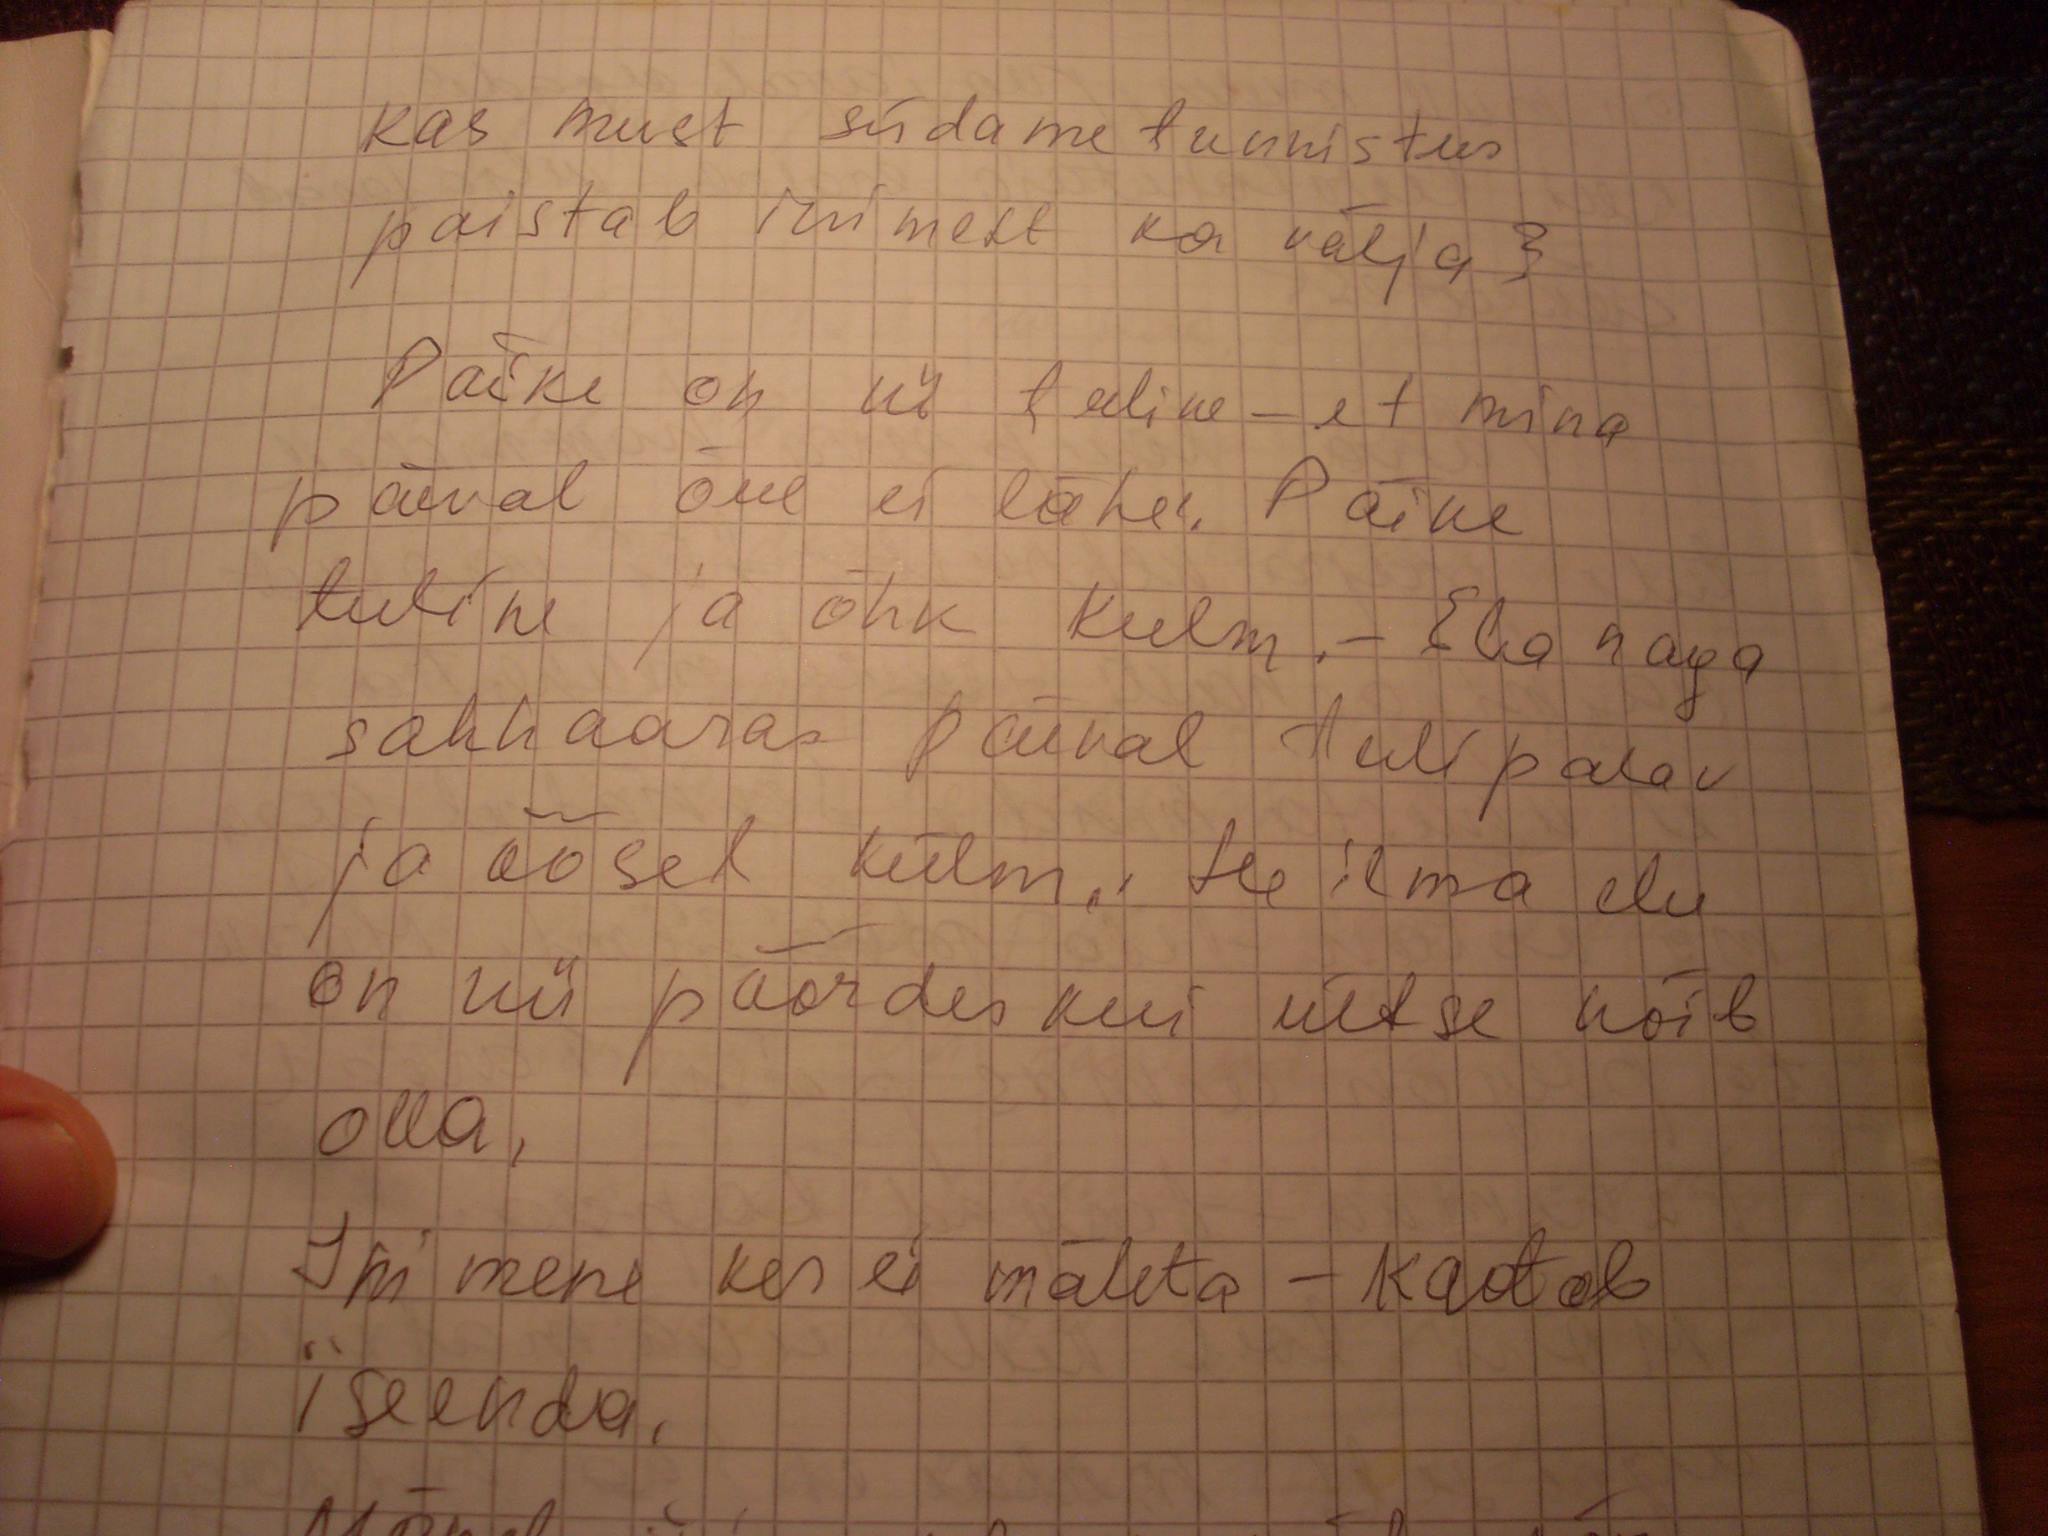 kas must südametunnistus
paistab inimest ka välja?
Päike on nii tuline – et mina
päeval õue ei lähe. Päike
tuline ja õhk külm. – Ela naga
sahhaaras päeval tulipalav
ja öösel külm. See ilma elu
on nii pöördes kui üldse võib
olla,
Inimene kes ei mäleta – kaotab
iseenda.